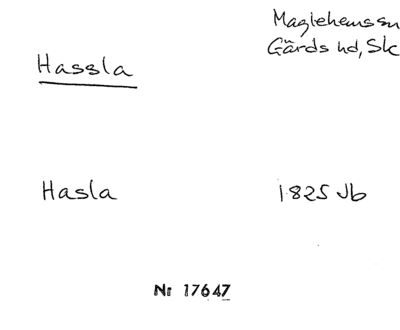 Maglehems sn
Gärds hd, Sk
Hassla
Hasla
1825 Jb
Nr 17647